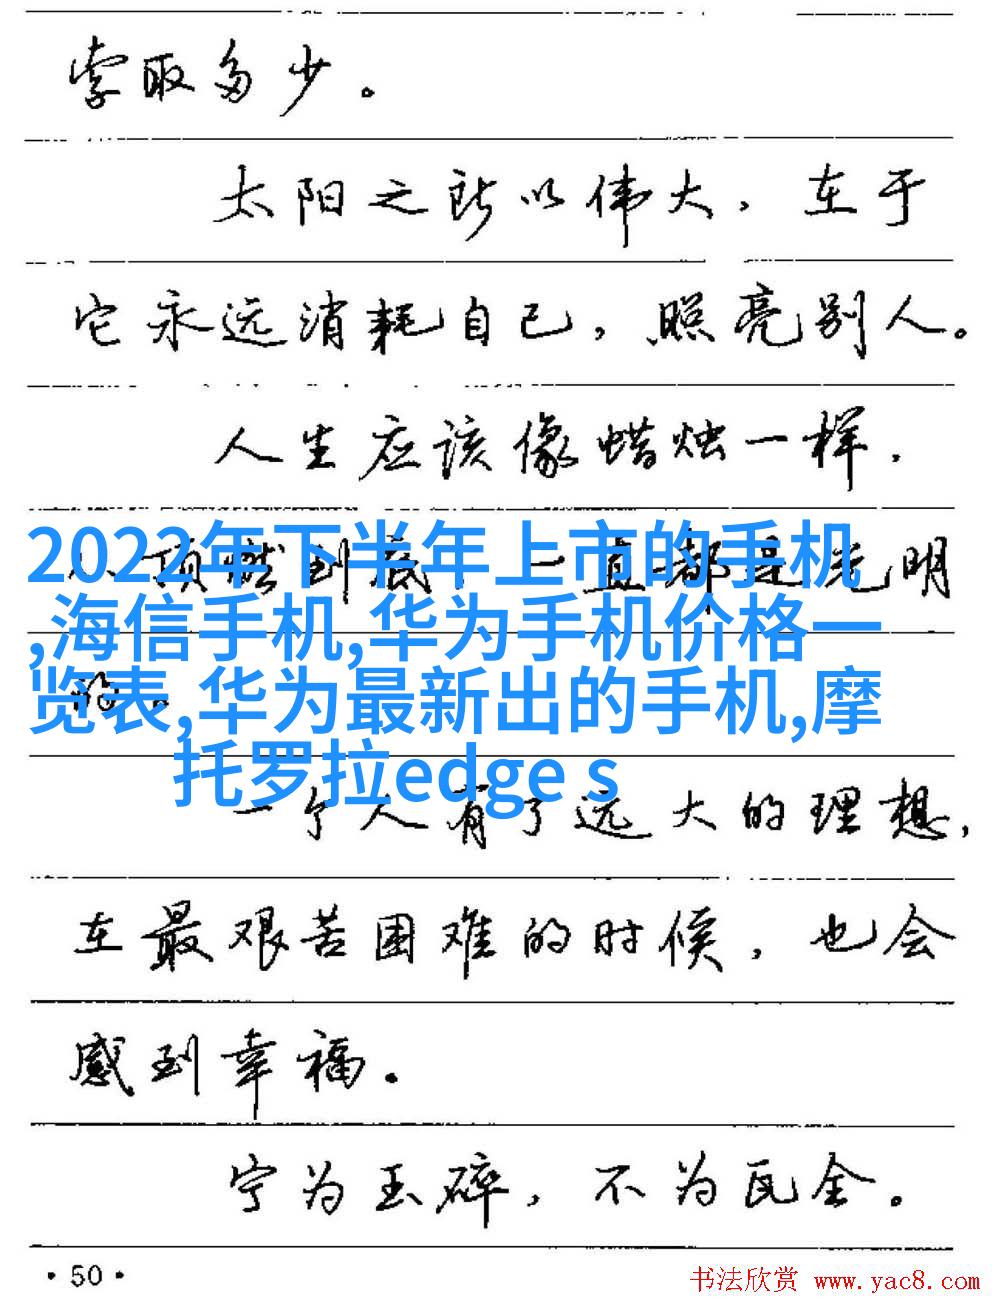 索取多少。
太阳之所以伟大，在于
它永远消耗自己，照亮别人。
人生应该像蜡烛一样，
2022年下半年上市的手机
从顶燃到底，一直都是光明
,海信手机,华为手机价格一
览表,华为最新出的手机,摩
的。
托罗拉edge s
一个人有了远大的理想，
在最艰苦困难的时候，也会
感到幸福。
宁为玉碎，不为瓦全。
·50·
书法欣赏 www.yac8.com